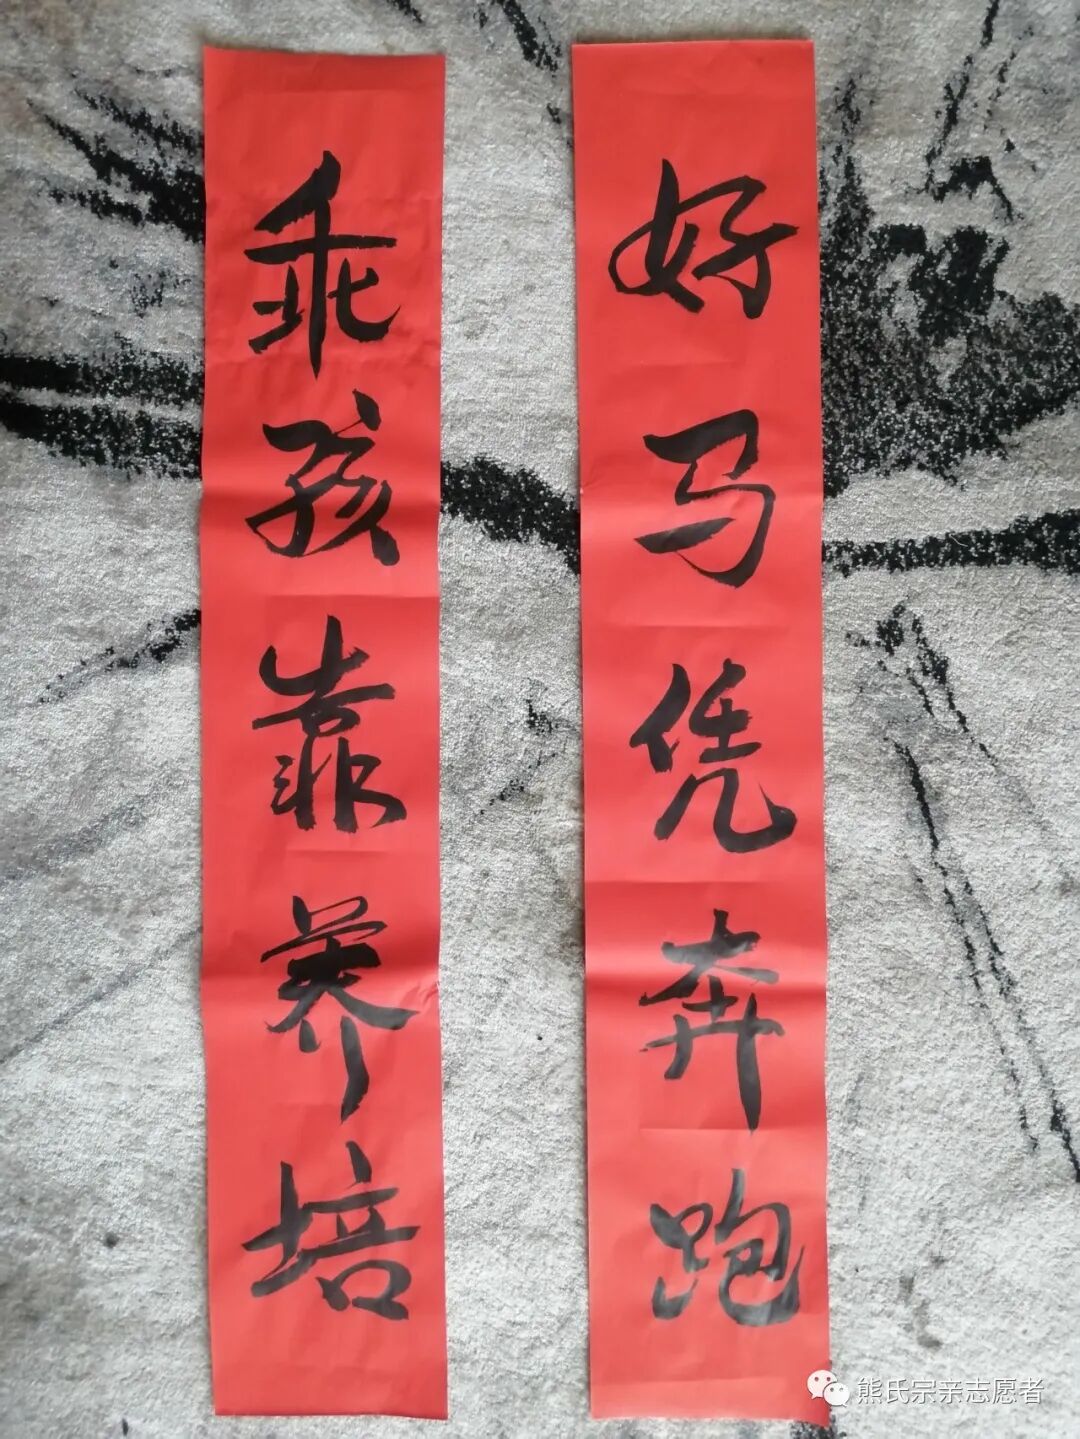 好马凭奔跑
乖孩靠养培
熊氏宗亲志愿者